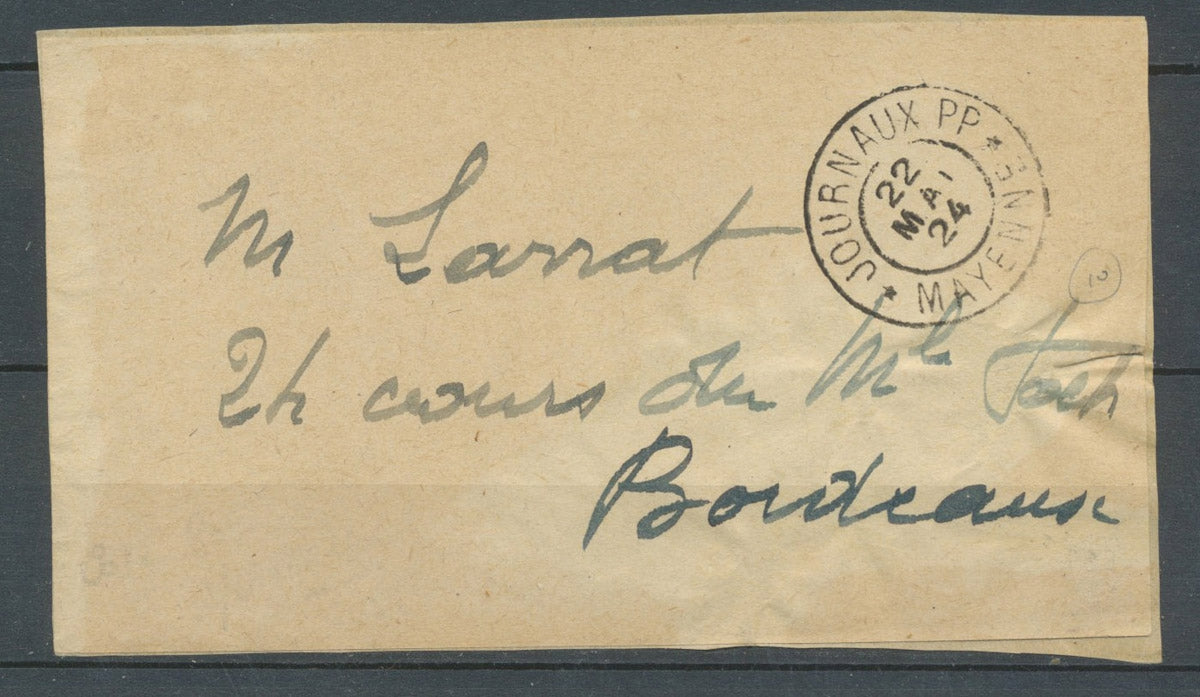 JOURNAUX PP * MAYENNE *
22
MAI
24
M Larrat
24 cours du Ml Foch
Bordeaux